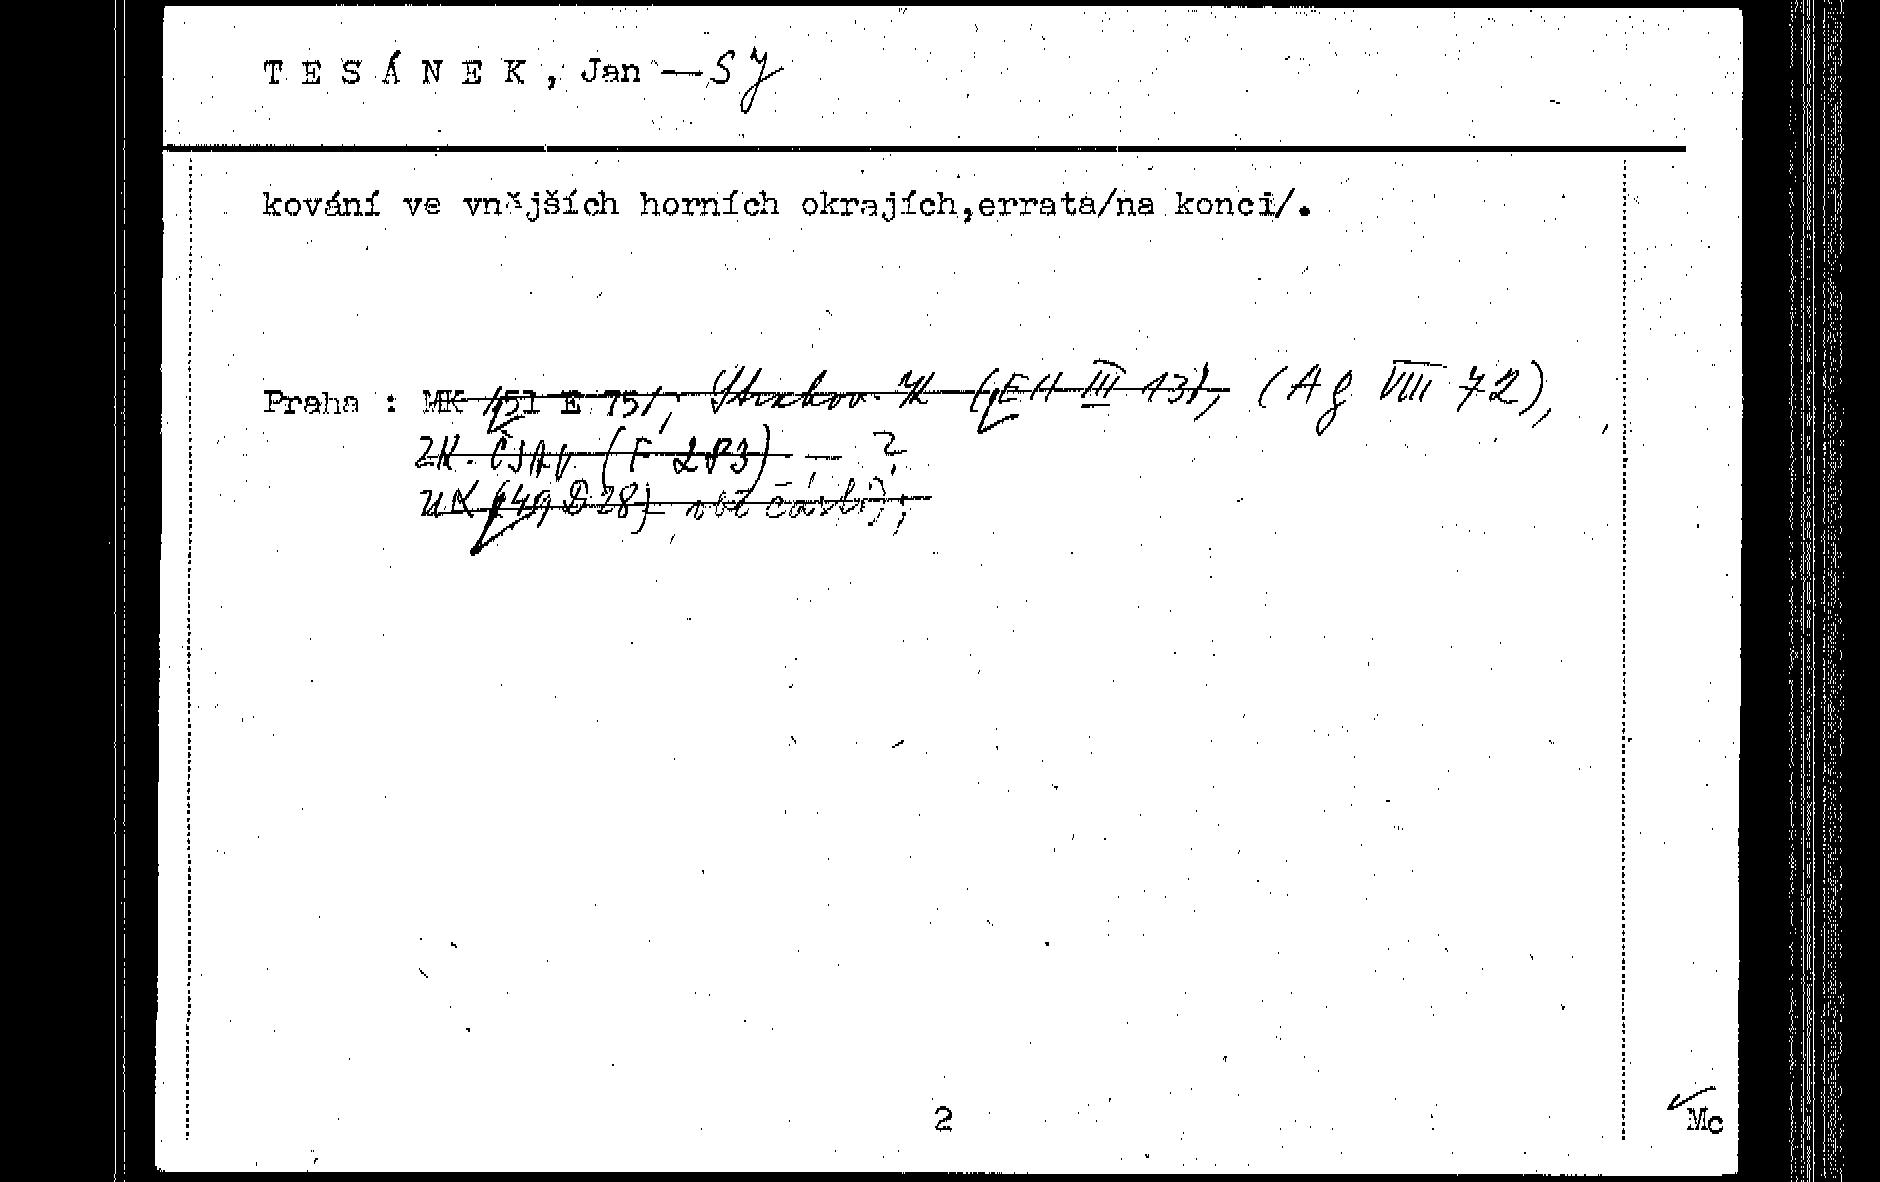 T E S Á N E K , Jan — SJ
kování ve vnějších horních okrajích,errata/na konci/.
Praha : MK /51 E 75/, Strahov. K (EH III 13), (Ag VIII 72),
ZK. ČSAV (F 283) — ?
UK (49 D 28) obě části?;
2
Mc